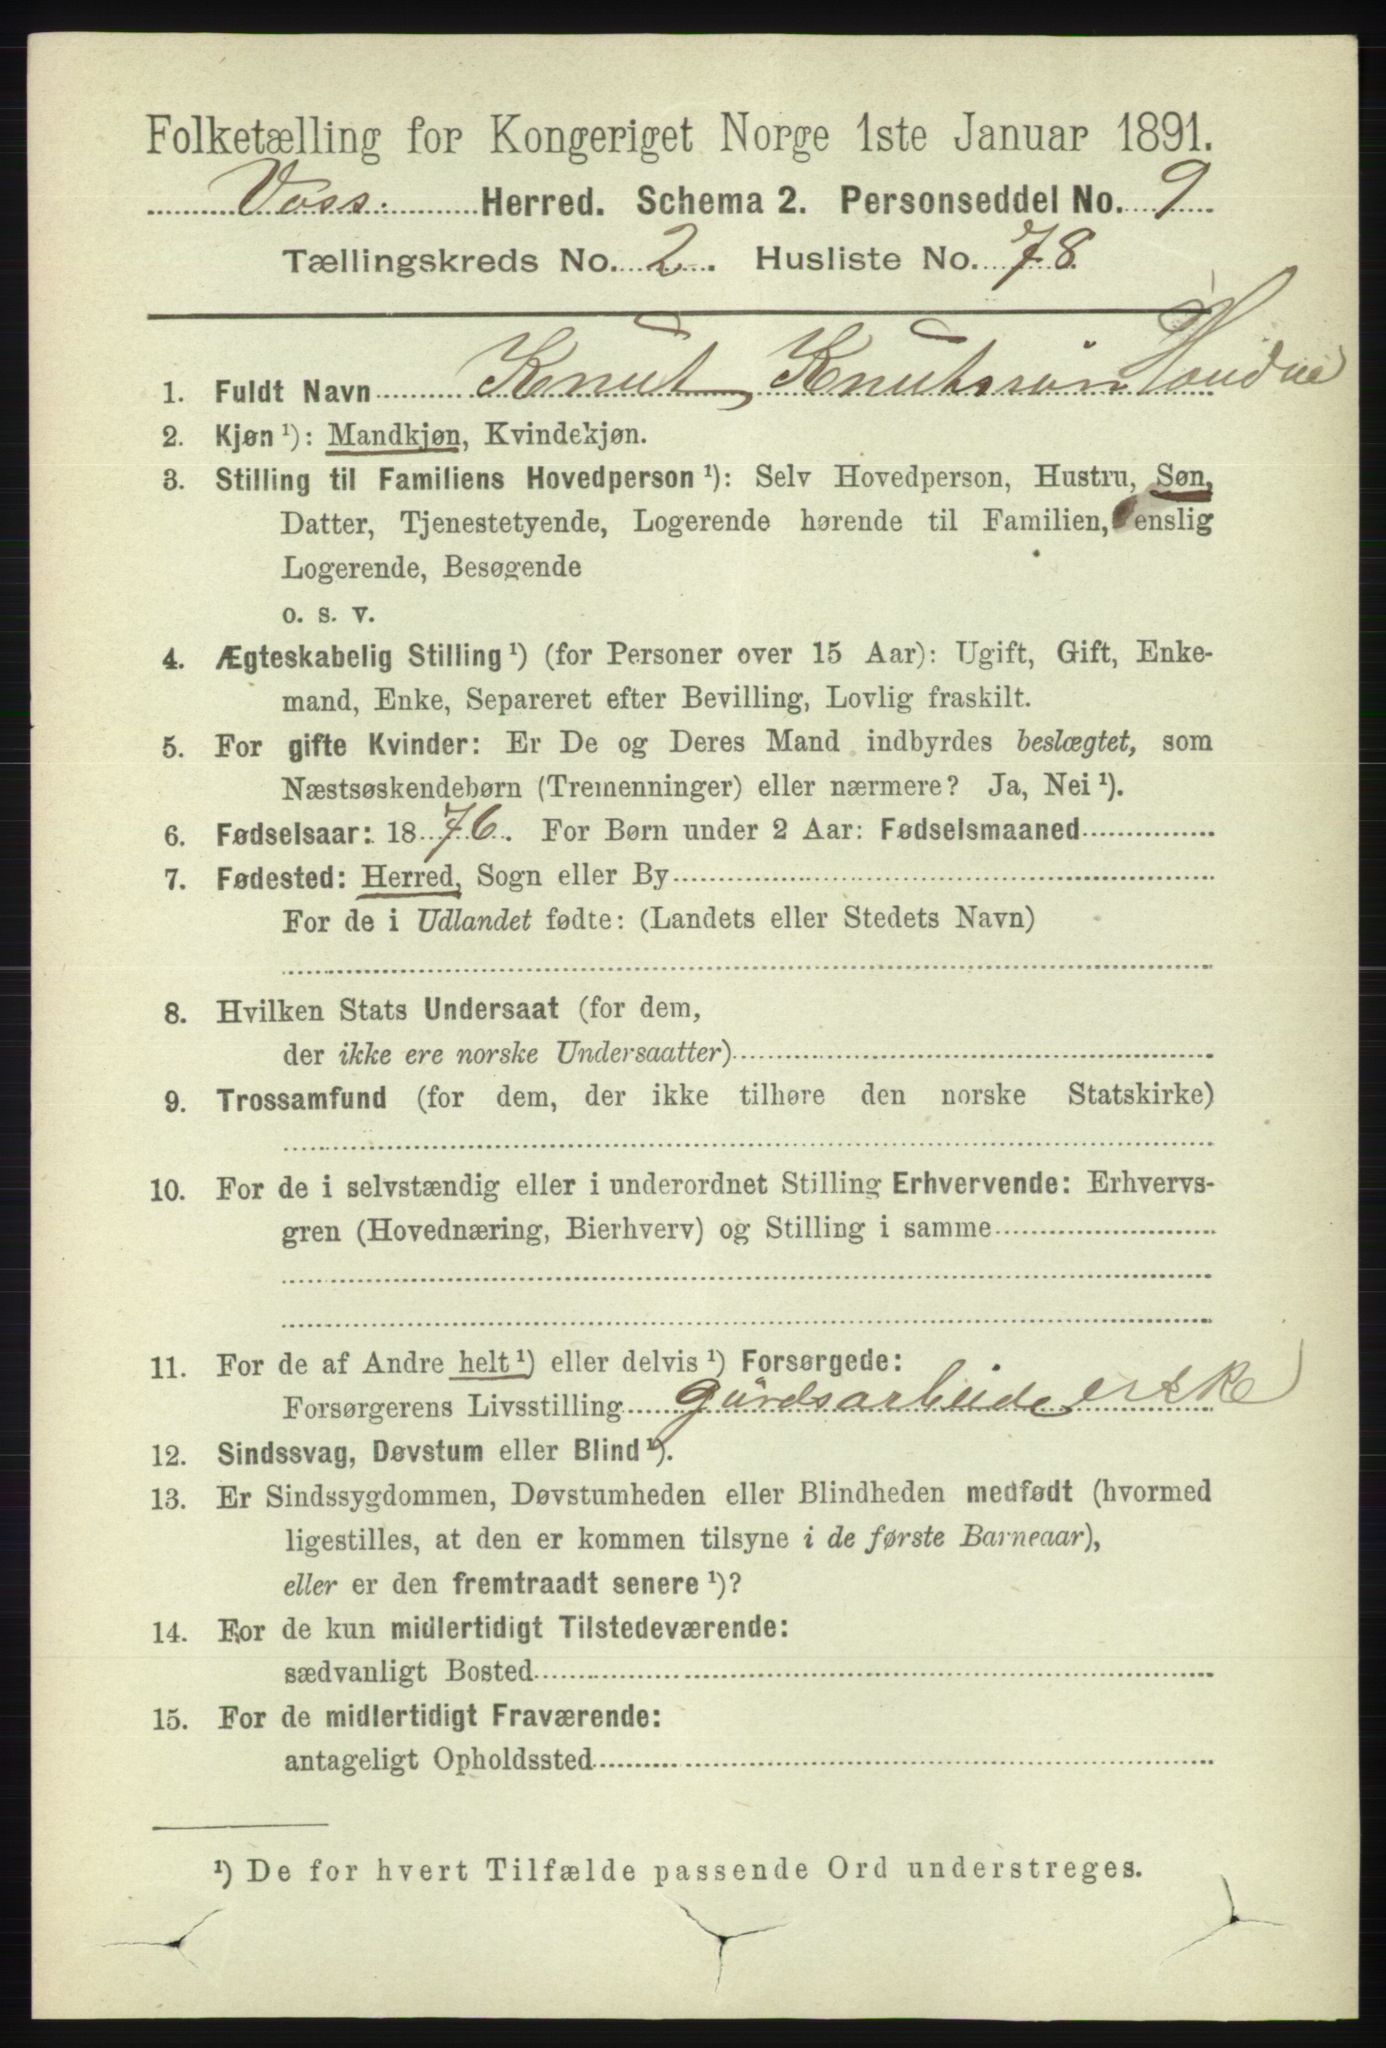 Folketælling for Kongeriget Norge 1ste Januar 1891.
Voss. Herred. Schema 2. Personseddel No. 9
Tællingskreds No. 2. Husliste No. 78.
1. Fuldt Navn Knut Knutssøn
2. Kjøn ¹): Mandkjøn, Kvindekjøn.
3. Stilling til Familiens Hovedperson ¹): Selv Hovedperson, Hustru, Søn,
Datter, Tjenestetyende, Logerende hørende til Familien, enslig
Logerende, Besøgende
o. s. v.
4. Ægteskabelig Stilling ¹) (for Personer over 15 Aar): Ugift, Gift, Enke-
mand, Enke, Separeret efter Bevilling, Lovlig fraskilt.
5. For gifte Kvinder: Er De og Deres Mand indbyrdes beslægtet, som
Næstsøskendebørn (Tremenninger) eller nærmere? Ja, Nei ¹).
6. Fødselsaar: 1876. For Børn under 2 Aar: Fødselsmaaned
7. Fødested: Herred, Sogn eller By
For de i Udlandet fødte: (Landets eller Stedets Navn)
8. Hvilken Stats Undersaat (for dem,
der ikke ere norske Undersaatter)
9. Trossamfund (for dem, der ikke tilhøre den norske Statskirke)
10. For de i selvstændig eller i underordnet Stilling Erhvervende: Erhvervs-
gren (Hovednæring, Bierhverv) og Stilling i samme
11. For de af Andre helt ¹) eller delvis ¹) Forsørgede:
Forsørgerens Livsstilling
12. Sindssvag, Døvstum eller Blind ¹).
13. Er Sindssygdommen, Døvstumheden eller Blindheden medfødt (hvormed
ligestilles, at den er kommen tilsyne i de første Barneaar),
eller er den fremtraadt senere ¹)?
14. For de kun midlertidigt Tilstedeværende:
sædvanligt Bosted
15. For de midlertidigt Fraværende:
antageligt Opholdssted
¹) De for hvert Tilfælde passende Ord understreges.